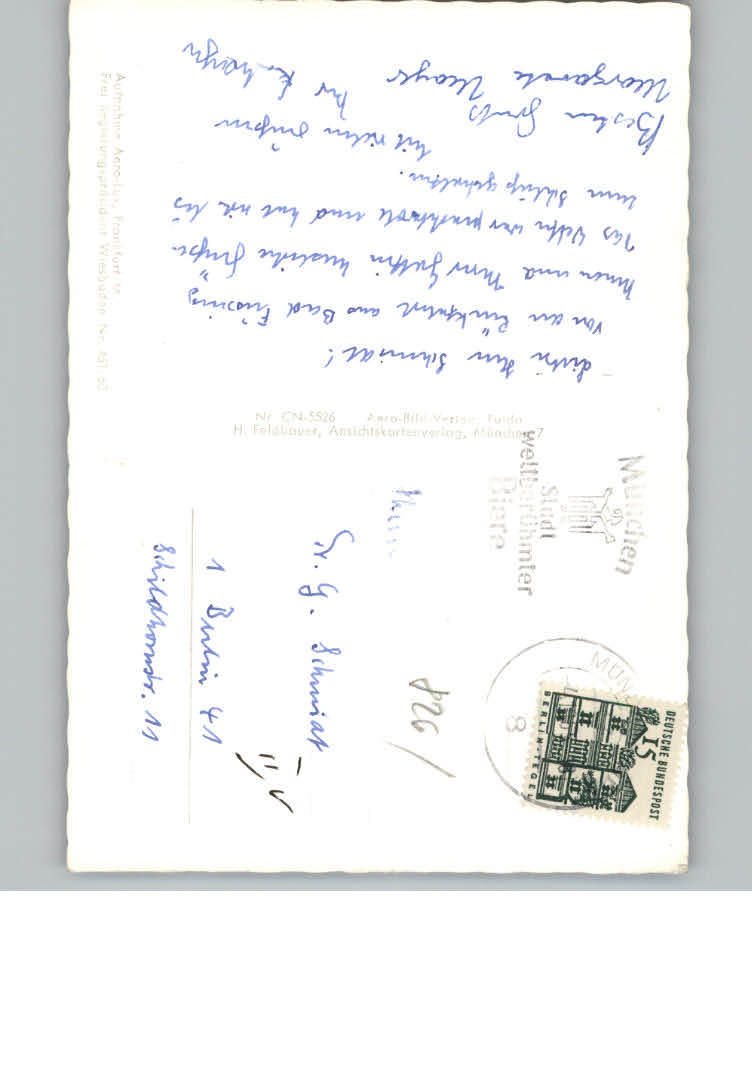 Lieber Herr Schmidt!
Von der Rückfahrt aus Bad Füssing
Ihnen und Ihrer Gattin herzliche Grüße.
Das Wetter war prachtvoll und hat sich bis
zum Schluß gehalten.
Mit vielen Grüßen
Ihr
Besten Gruß
Margarete Mayer
Aufnahme Aero-Lux, Frankfurt/M.
Frei Regierungspräsident Wiesbaden Nr. 461/60
Nr. CN-5526 Aero-Bild-Verlag, Fulda
H. Feldbauer, Ansichtskartenverlag, München 7
München
Stadt
weltberühmter
Biere
MÜN
8
DEUTSCHE BUNDESPOST
15
BERLIN-TEGEL
826/
Herrn
Dr. G. Schmidt
1 Berlin 41
Schildhornstr. 11